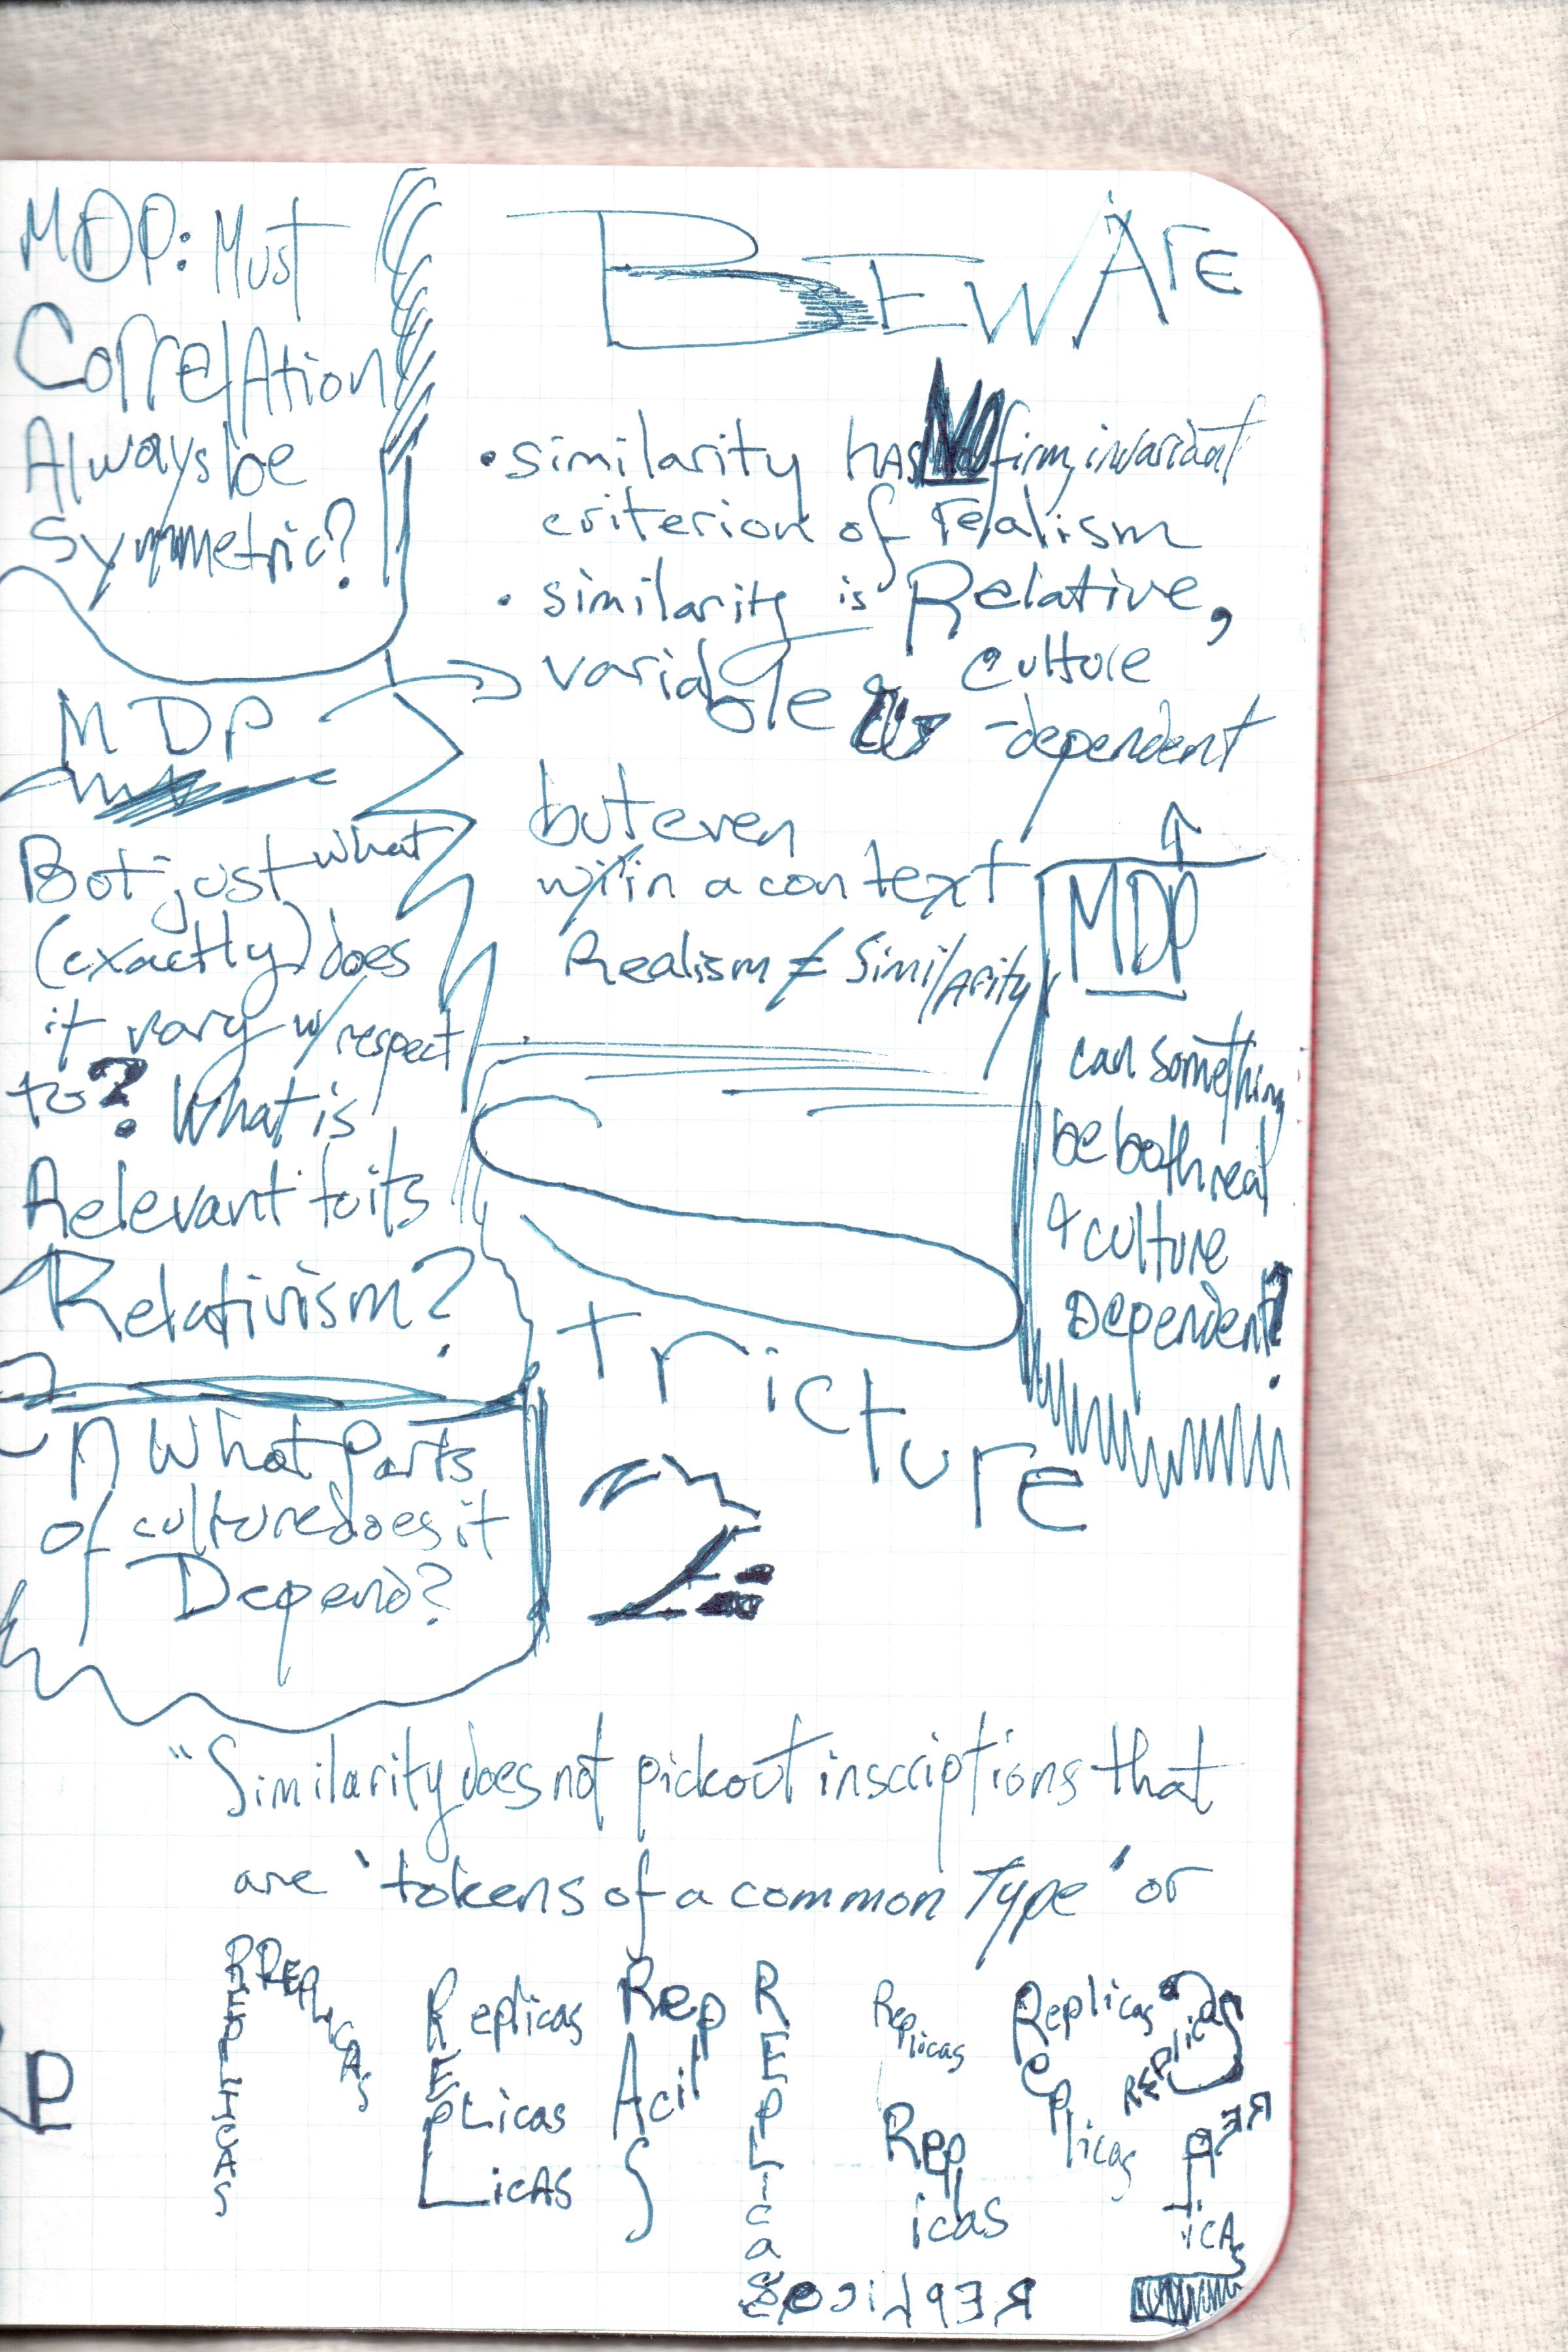 MDP: Must
Correlation
Always be
Symmetric?
BEWAre
• similarity has NO firm, invariant
criterion of realism
• similarity is Relative,
variable & culture
-dependent
MDP
But just what
(exactly) does
it vary w/ respect
to? What is
Relevant to its
Relativism?
but even
w/in a context
Realism ≠ Similarity
MDP
can something
be both real
& culture
Dependent?
What Parts
of culture does it
Depend?
Stricture
2:
"Similarity does not pick out inscriptions that
are 'tokens of a common Type' or
REPLICAS
REPLICAS
Replicas
REpLicas
LicAS
RepliCAS
REPLicas
Replicas
Replicas
Replicas
Replicas
REPlicas
REPlicAs
REPlicas
P